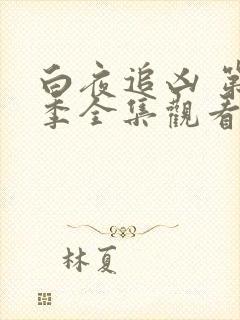 白夜追凶 第
季全集觀看
林夏